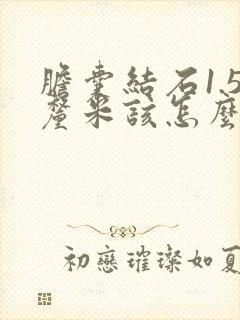 膽囊結石1.5
釐米該怎麼
初戀璀璨如夏